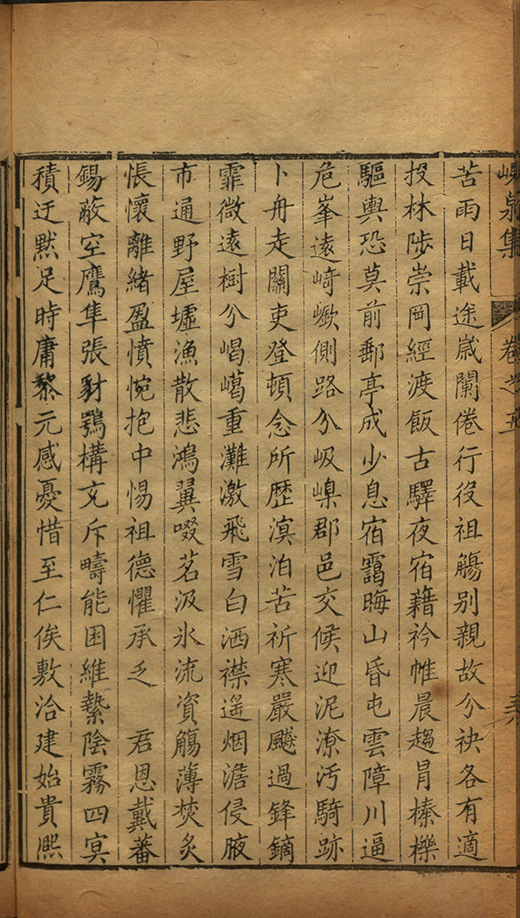 峴泉集 卷之五
苦雨日載途歲闌倦行役祖觴別親故分袂各有適
投林陟崇岡經渡飯古驛夜宿藉衿帷晨趨冒榛櫟
驅輿恐莫前郵亭成少息宿靄晦山昏屯雲障川逼
危峯遠崎嶔側路分岌嵲郡邑交候迎泥潦汚騎跡
卜舟走關吏登頓念所歷溟泊苦祈寒嚴飈過鋒鏑
霏微遠樹分崵嶱重灘激飛雪白洒襟遙烟澹侵腋
市通野屋墟漁散悲鴻翼啜茗汲氷流資觴薄焚炙
悵懷離緒盈憤惋抱中惕祖德懼承乏 君恩戴蕃
錫蔽空鷹隼張豺鶚構充斥疇能困維縶陰霧四冥
積迂默足時庸黎元感憂惜至仁俟敷洽建始貴熙